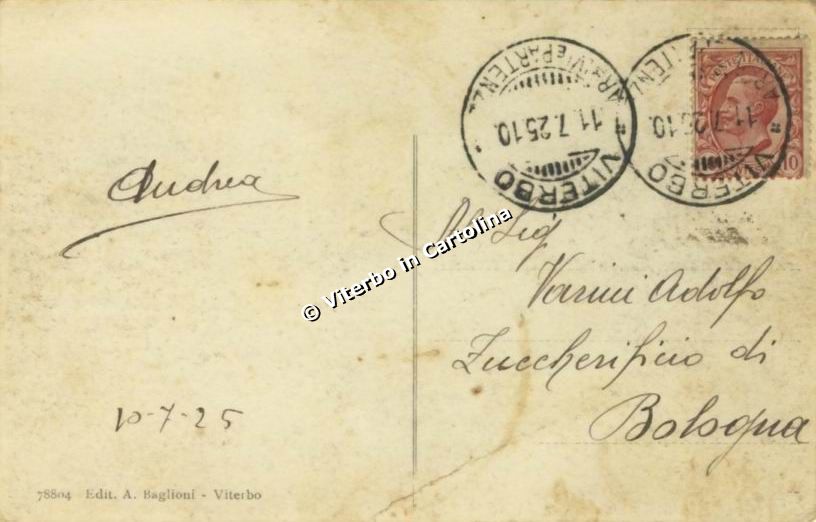 Andrea
10-7-25
78804 Edit. A. Baglioni - Viterbo
© Viterbo in Cartolina
Al Sig
Varini Adolfo
Zuccherificio di
Bologna
VITERBO
11.7.25 10.
ARRIVI E PARTENZE
VITERBO
11.7.25 10.
POSTE ITALIANE
10